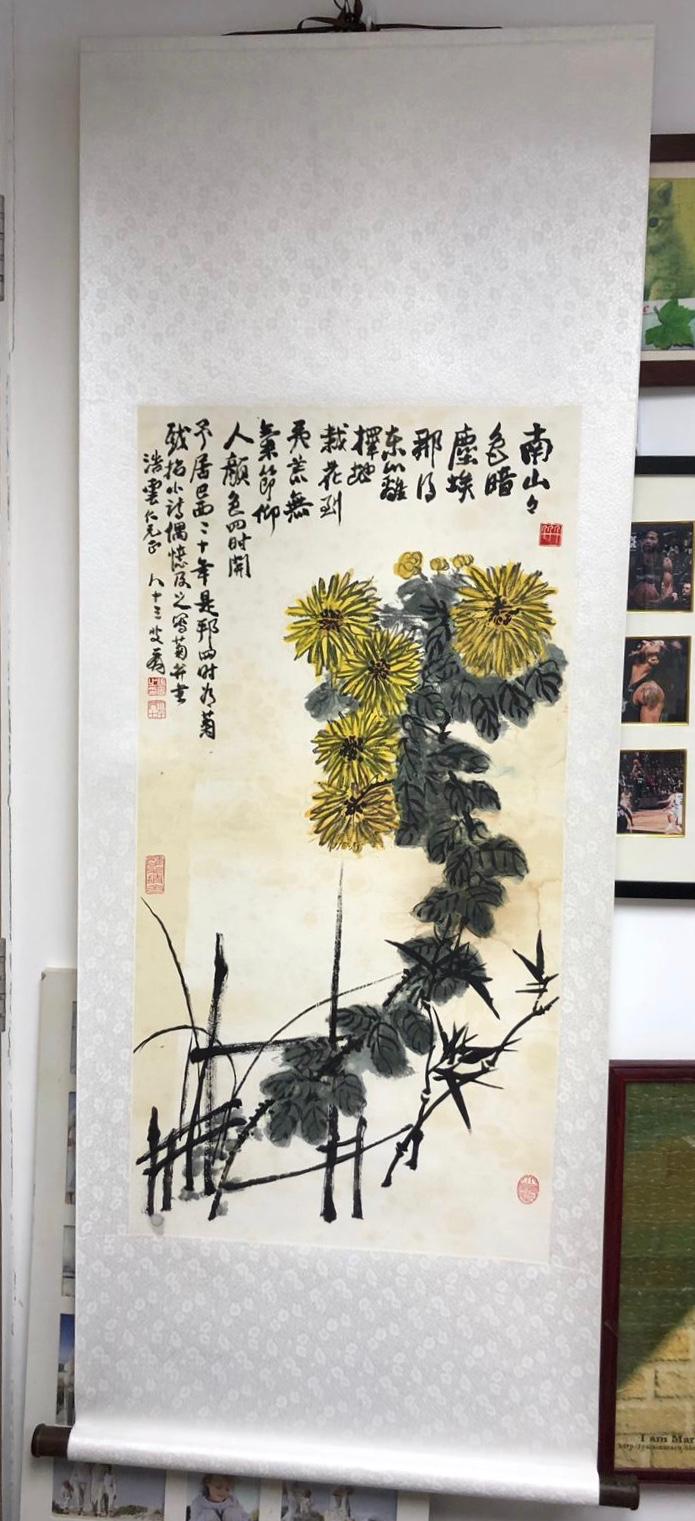 南山々
色暗
塵埃
那得
东籬
擇地
栽花到
夷荒無
氣節仰
人顏色四时開
予居巴西二十年是邦四时有菊
戏拈小詩偶憶及之寫菊并書
浩雲仁兄正 八十三叟爰
I am Mar